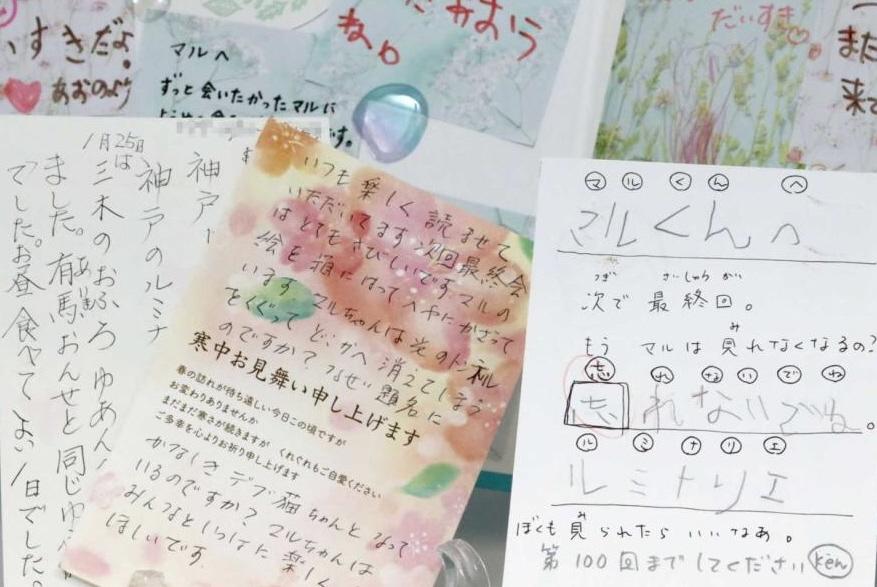 いすきだよ。
あおのより
マルへ
ずっと会いたかったマルに
す。
ね。
だいすき
また
来て
1月25日は
神戸
神戸のルミナ
三木のおふろ ゆあみ
ました。有馬おんせと同じゆ
でした。お昼食べてよい1日でした。
いつも楽しく読ませて
いただいてます 次回最終会
はとてもさびしいです マルの
絵を箱にはってへやにかざって
います マルちゃんは光のトンネル
をくぐって どこかへ消えてしまう
のですか? なぜ題名に
寒中お見舞い申し上げます
春の訪れが待ち遠しい今日この頃ですが
お変わりありませんか
まだまだ寒さが続きますが くれぐれもご自愛ください
ご多幸を心よりお祈り申し上げます
かなしき デブ猫ちゃんと なって
いるのですか? マルちゃんは
みんなといっしょに 楽しく
ほしいです
マルくんへ
マルくんへ
つぎ さいしゅうかい
次で 最終回。
み
もう マルは 見れなくなるの?
忘れないでね
忘れないでね。
ルミナリエ
ルミナリエ
み
ぼくも見られたら いいなあ。
第100回までしてください ken